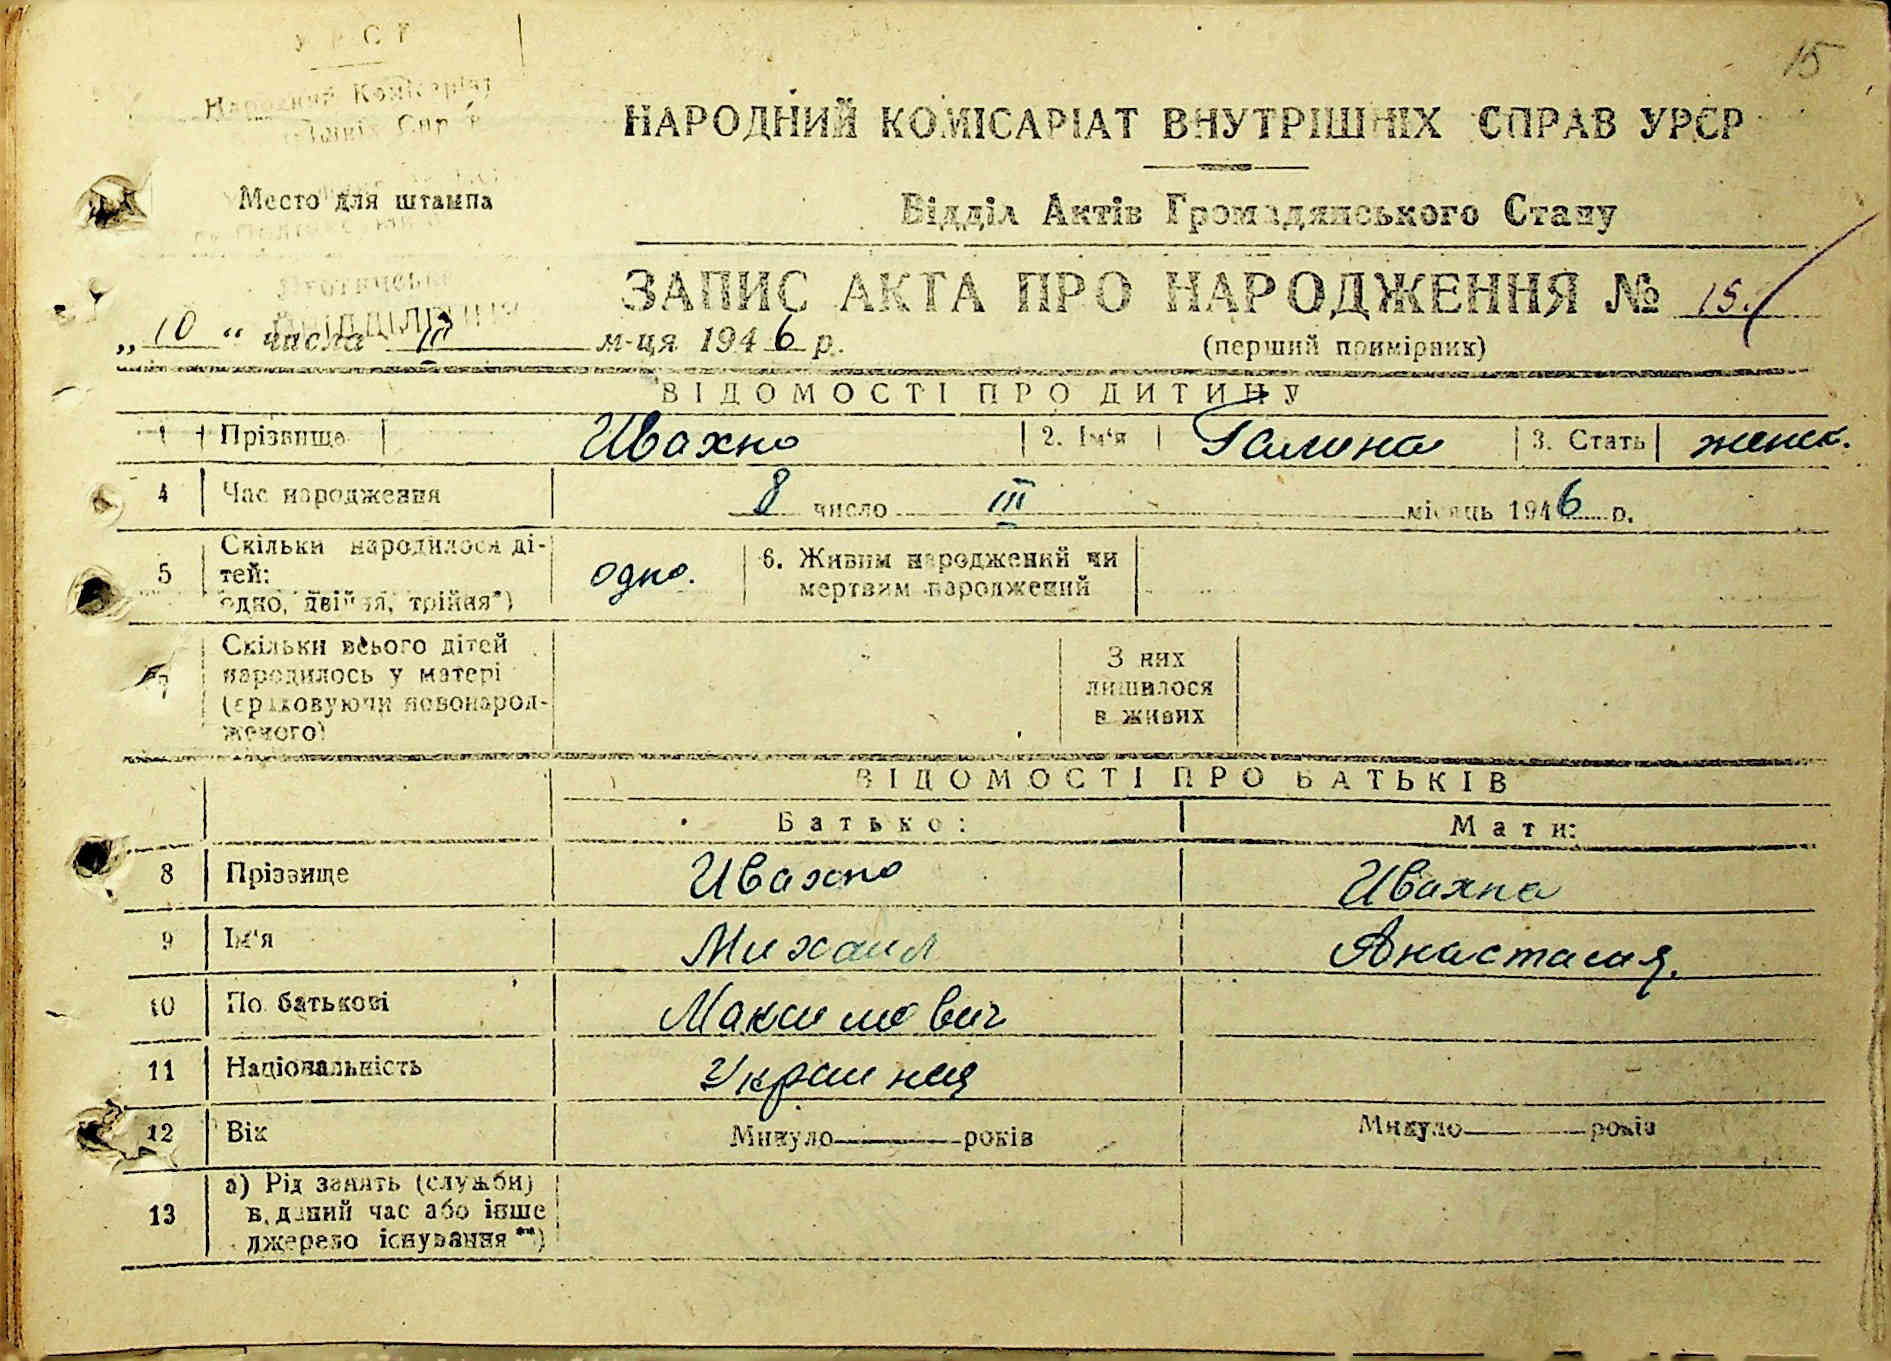 15
У Р С Р
Народний Комісаріят
НАРОДНИЙ КОМІСАРІАТ ВНУТРІШНІХ СПРАВ УРСР
Место для штампа
Відділ Актів Громадянського Стану
ЗАПИС АКТА ПРО НАРОДЖЕННЯ № 15.
„ 10 “ числа III м-ця 1946 р.
(перший примірник)
ВІДОМОСТІ ПРО ДИТИНУ
1 Прізвище Ивахно 2. Ім'я Галина 3. Стать женск.
4 Час народження 8 число III місяць 1946 р.
5 Скільки народилося ді-
тей:
одно, двійня, трійня*) одно. 6. Живим народжений чи
мертвим народжений
7 Скільки всього дітей
народилось у матері
(враховуючи новонарод-
женого)
З них
лишилося
в живих
ВІДОМОСТІ ПРО БАТЬКІВ
Батько: Мати:
8 Прізвище Ивахно Ивахна
9 Ім'я Михаил Анастасия.
10 По батькові Максимович
11 Національність Украинця
12 Вік Минуло років Минуло років
13 а) Рід занять (служби)
в даний час або інше
джерело існування **)